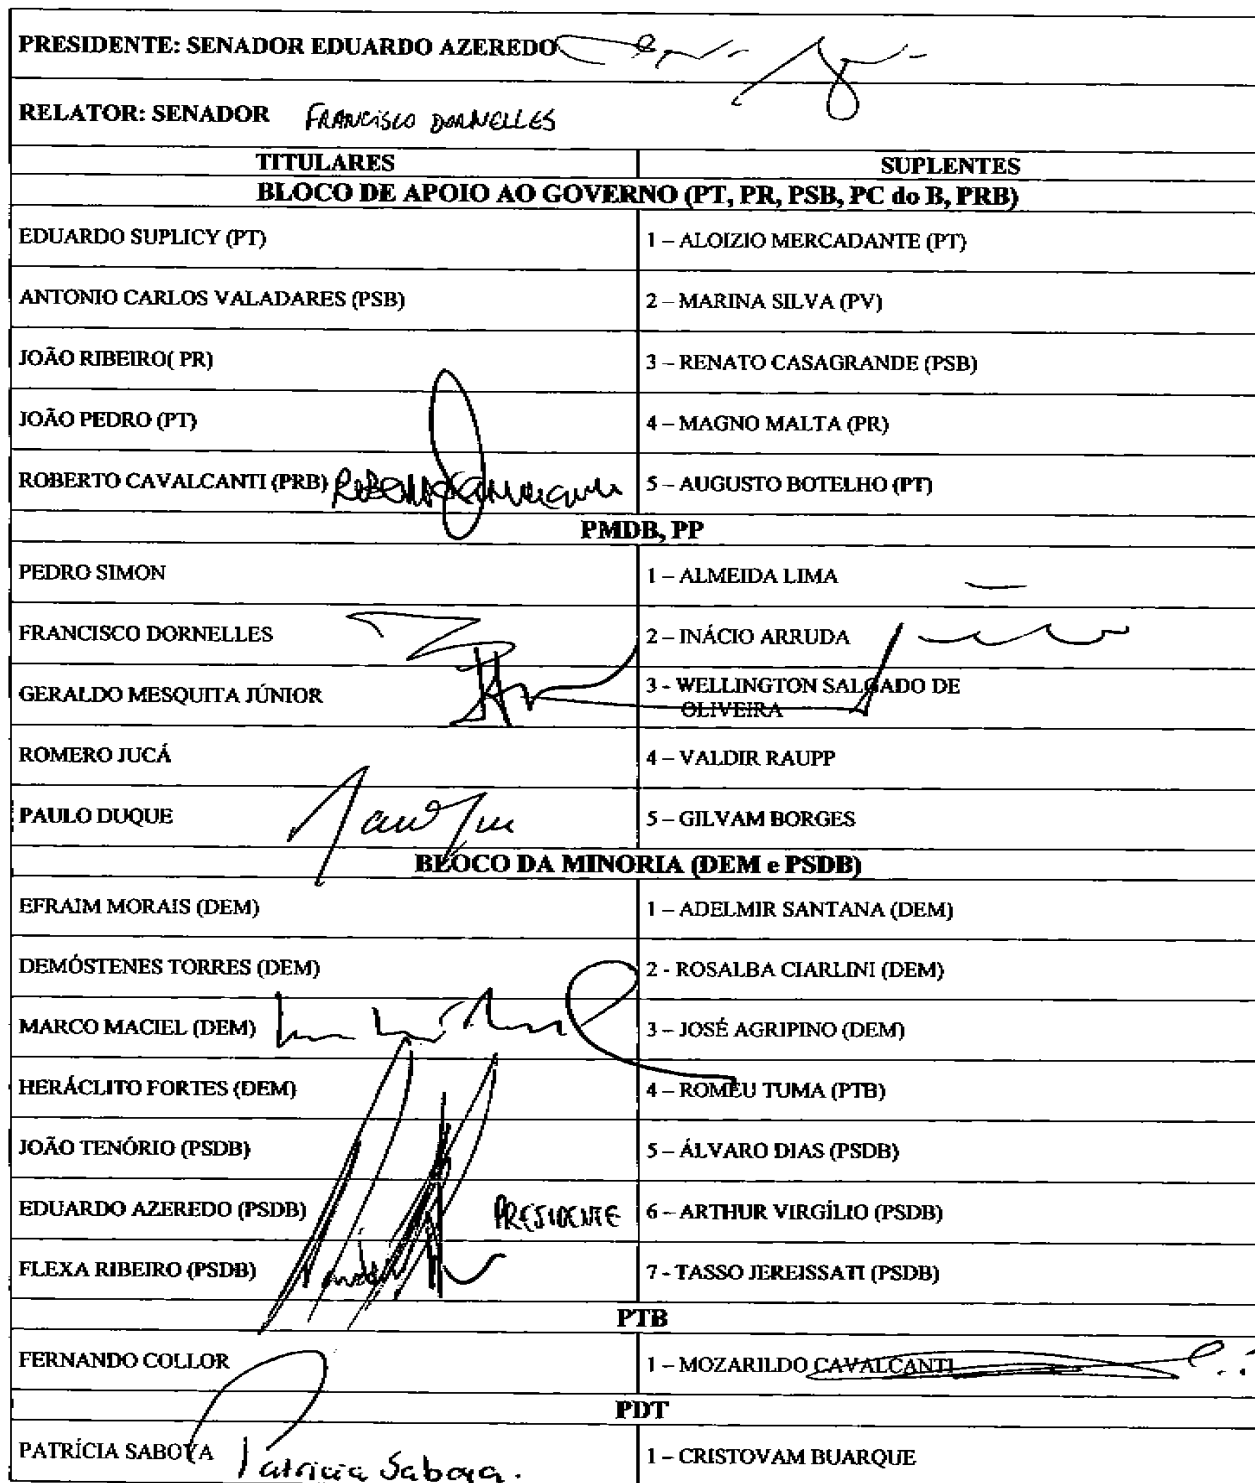 PRESIDENTE: SENADOR EDUARDO AZEREDO
RELATOR: SENADOR FRANCISCO DORNELLES
TITULARES SUPLENTES
BLOCO DE APOIO AO GOVERNO (PT, PR, PSB, PC do B, PRB)
EDUARDO SUPLICY (PT) 1 – ALOIZIO MERCADANTE (PT)
ANTONIO CARLOS VALADARES (PSB) 2 – MARINA SILVA (PV)
JOÃO RIBEIRO( PR) 3 – RENATO CASAGRANDE (PSB)
JOÃO PEDRO (PT) 4 – MAGNO MALTA (PR)
ROBERTO CAVALCANTI (PRB) 5 – AUGUSTO BOTELHO (PT)
PMDB, PP
PEDRO SIMON 1 – ALMEIDA LIMA
FRANCISCO DORNELLES 2 – INÁCIO ARRUDA
GERALDO MESQUITA JÚNIOR 3 - WELLINGTON SALGADO DE
OLIVEIRA
ROMERO JUCÁ 4 – VALDIR RAUPP
PAULO DUQUE 5 – GILVAM BORGES
BLOCO DA MINORIA (DEM e PSDB)
EFRAIM MORAIS (DEM) 1 – ADELMIR SANTANA (DEM)
DEMÓSTENES TORRES (DEM) 2 - ROSALBA CIARLINI (DEM)
MARCO MACIEL (DEM) 3 – JOSÉ AGRIPINO (DEM)
HERÁCLITO FORTES (DEM) 4 – ROMEU TUMA (PTB)
JOÃO TENÓRIO (PSDB) 5 – ÁLVARO DIAS (PSDB)
EDUARDO AZEREDO (PSDB) PRESIDENTE 6 – ARTHUR VIRGÍLIO (PSDB)
FLEXA RIBEIRO (PSDB) 7 - TASSO JEREISSATI (PSDB)
PTB
FERNANDO COLLOR 1 – MOZARILDO CAVALCANTI
PDT
PATRÍCIA SABOYA Patricia Saboya. 1 – CRISTOVAM BUARQUE